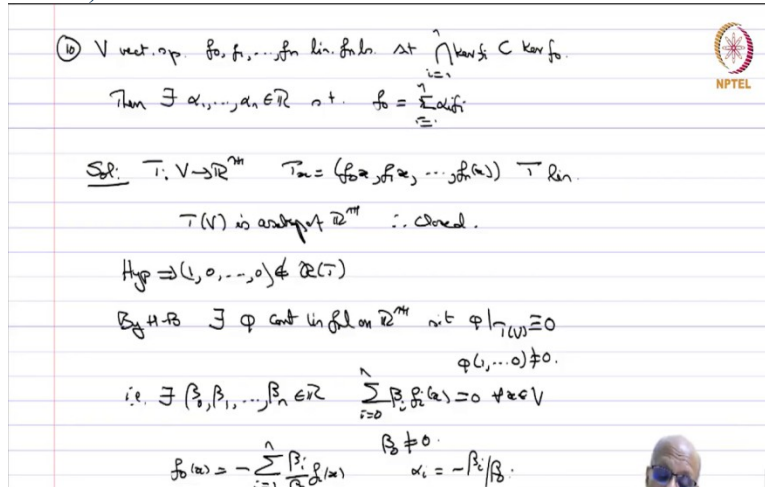 ⑩ V vect. sp. f₀, f₁, ..., fₙ lin. fnls. st ⋂ᵢ₌₁ⁿ ker fᵢ ⊂ ker f₀.
NPTEL
Then ∃ α₁, ..., αₙ ∈ ℝ s.t. f₀ = Σᵢ₌₁ⁿ αᵢfᵢ
Sol: T: V → ℝⁿ⁺¹ Tx = (f₀x, f₁x, ..., fₙ(x)) T lin.
T(V) is a subsp of ℝⁿ⁺¹ ∴ closed.
Hyp ⇒ (1, 0, ..., 0) ∉ R(T)
By H-B ∃ φ cont lin fnl on ℝⁿ⁺¹ s.t φ|T(V) ≡ 0
φ(1, ... 0) ≠ 0.
i.e. ∃ β₀, β₁, ..., βₙ ∈ ℝ Σᵢ₌₀ⁿ βᵢ fᵢ(x) = 0 ∀x ∈ V
β₀ ≠ 0.
f₀(x) = - Σᵢ₌₁ⁿ βᵢ/β₀ fᵢ(x) αᵢ = -βᵢ/β₀.